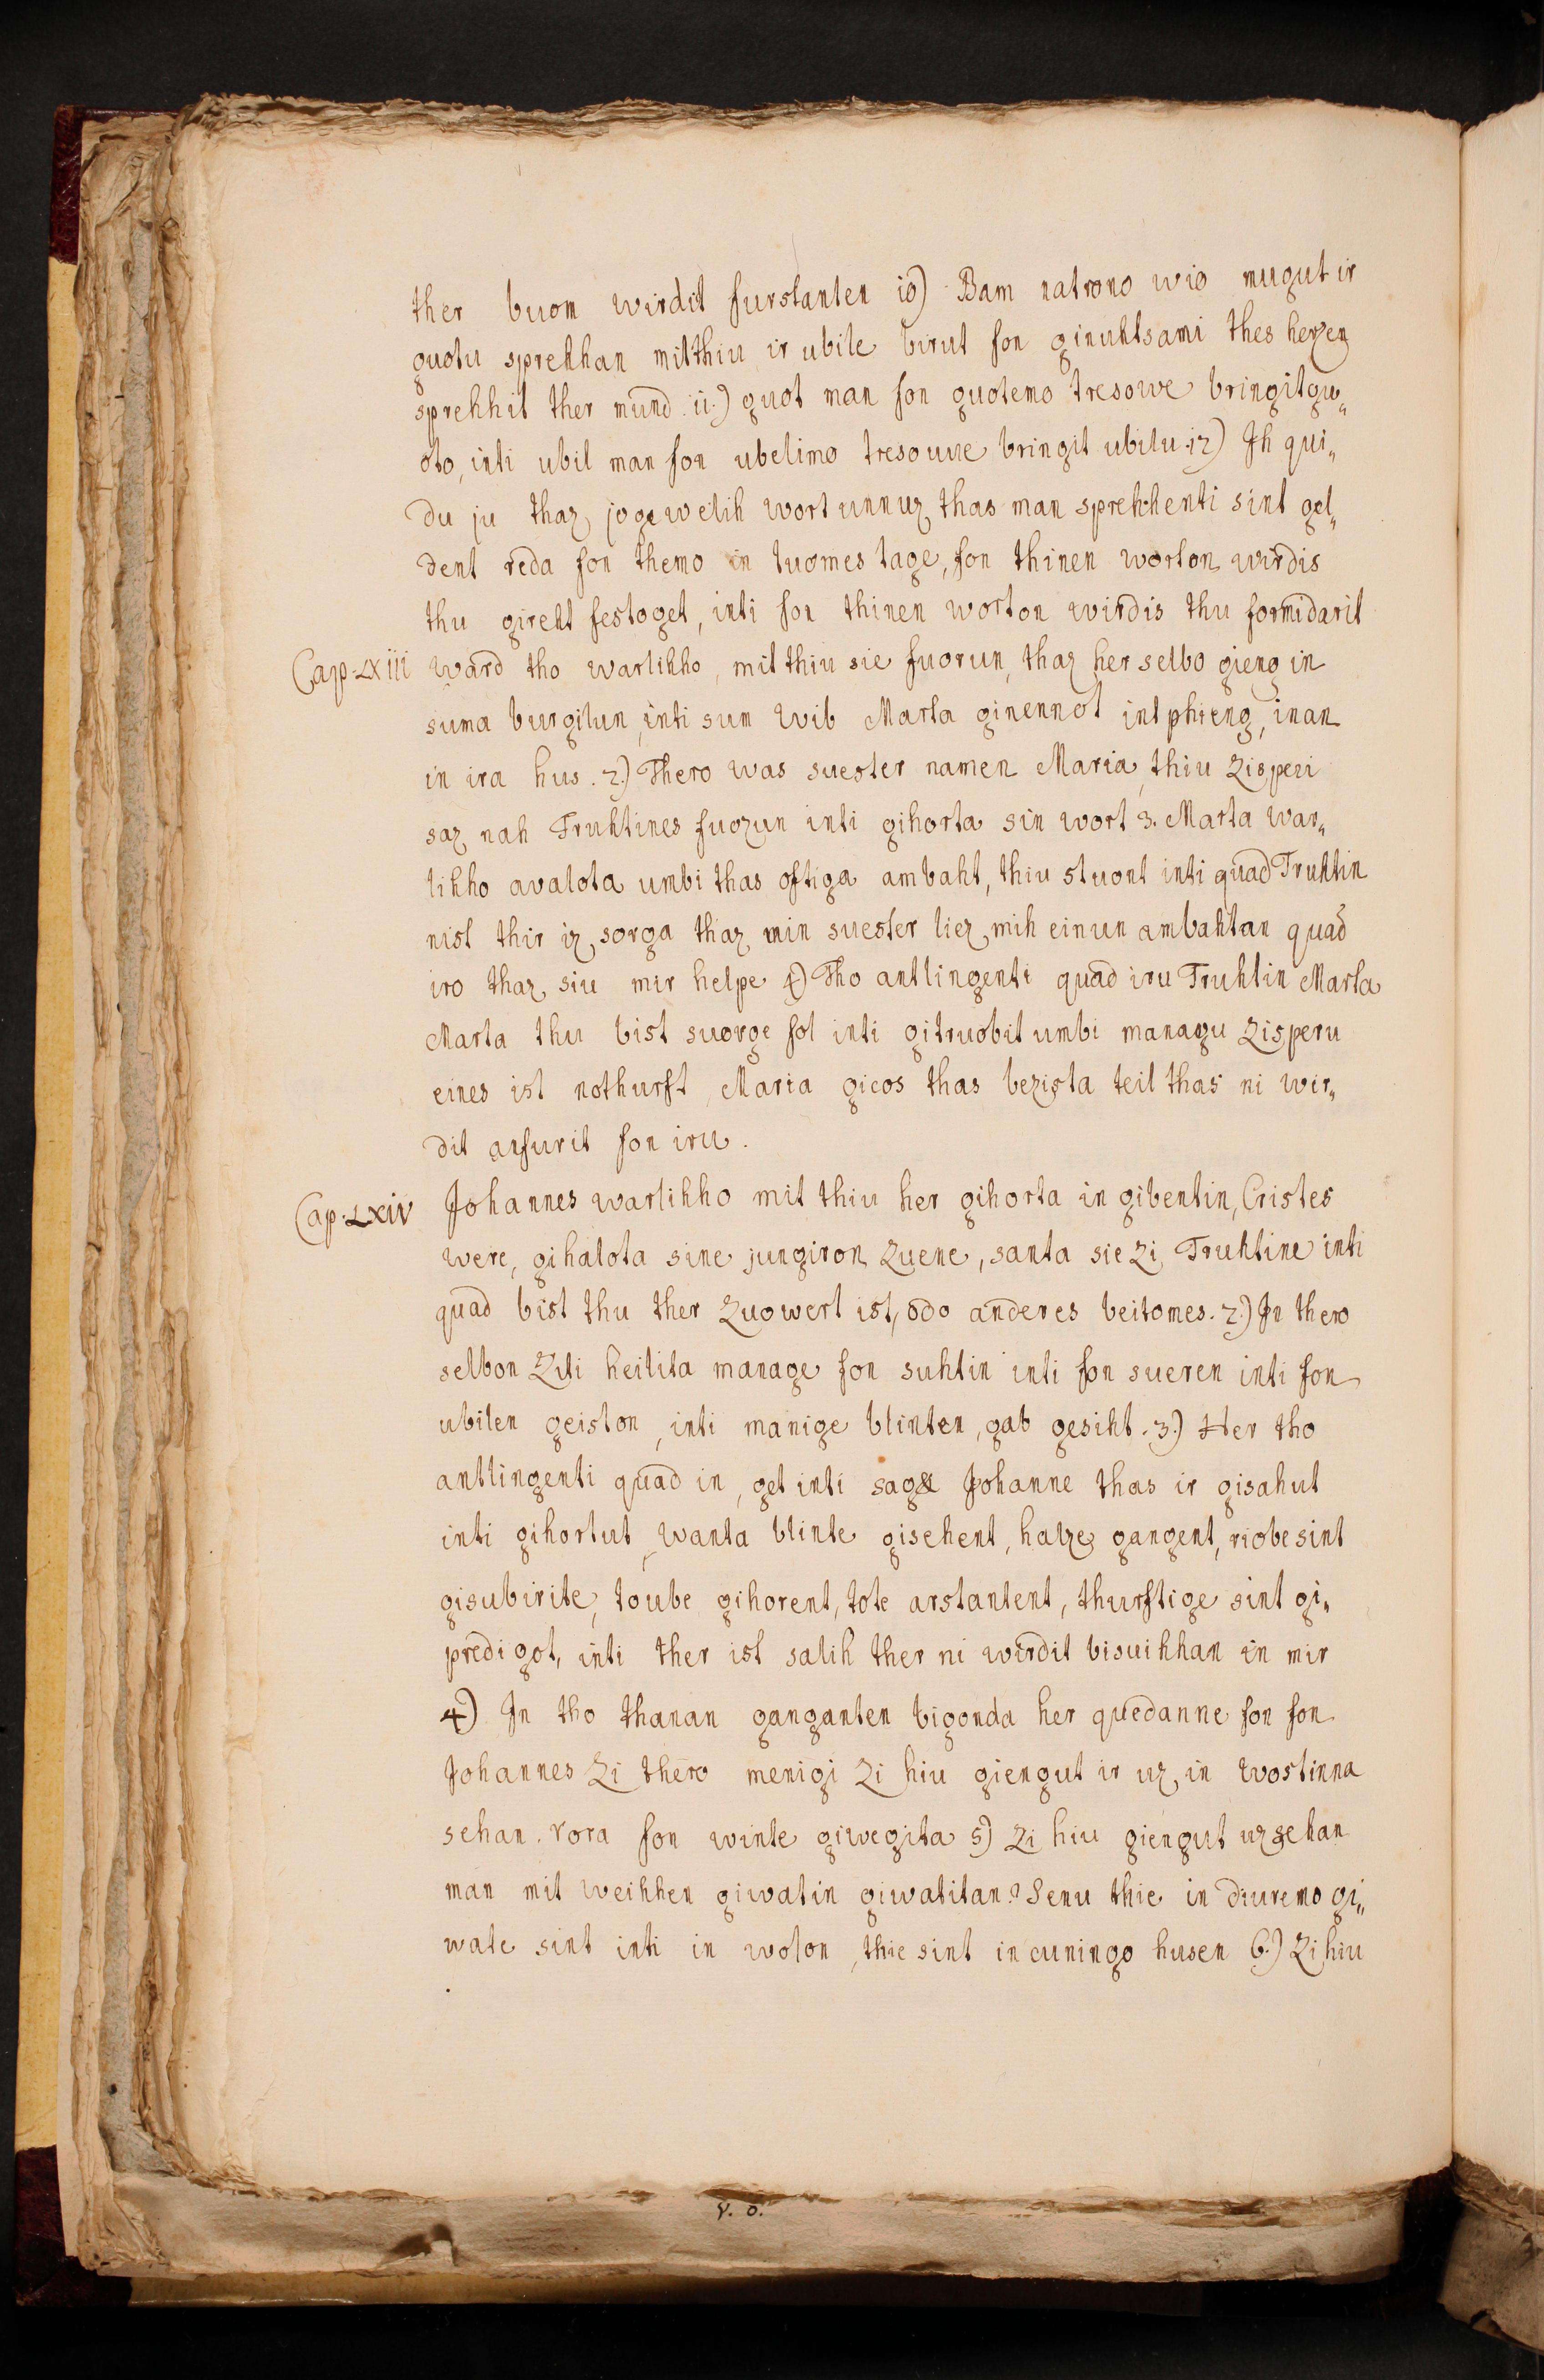 ther buom wirdit furstanten 10) Bam natrono wio mugut ir
guotu sprehhan mitthiu ir ubile birut fon ginuhtsami thes herzen
sprehhit ther mund. 11.) guot man fon guotemo tresowe bringit gu„
oto, inti ubil man fon ubelimo tresouue bringit ubilu. 12) Ih qui„
du ju thaz jogewelih wort unnuz thas man sprehhenti sint gel„
dent reda fon themo in tuomes tage, fon thinen worton wirdis
thu gireht festoget, inti fon thinen worton wirdis thu formidarit
Cap. LXiii ward tho warlihho, mit thiu sie fuorun, thaz her selbo gieng in
suma burgilun, inti sum wib Marta ginennot intphieng, inan
in ira hus. 2.) Thero was suester namen Maria, thiu Zisperi
saz nah Truhtines fuozun inti gihorta sin wort 3. Marta war„
lihho avalota umbi thas oftiga ambaht, thiu stuont inti quad Truhtin
nist thir iz sorga thaz min suester liez mih einun ambahtan quad
iro thaz siu mir helpe 4) Tho antlingenti quad iru Truhtin Marta
Marta thu bist suorge fol inti gitruobit umbi managu Zisperu
eines ist nothurft, Maria gicos thas bezista teil thas ni wir„
dit arfurit fon iru.
Cap. LXiv Johannes warlihho mit thiu her gihorta in gibentin, Cristes
were, gihalota sine jungiron Zuene, santa sie Zi Truhtine inti
quad bist thu ther Zuowert ist, odo anderes beitomes. 2.) In thero
selbon Ziti heilita manage fon suhtin inti fon sueren inti fon
ubilen geiston, inti manige blinten, gab gesiht. 3.) Her tho
antlingenti quad in, get inti sag& Johanne thas ir gisahut
inti gihortut, wanta blinte gisehent, halze gangent, riobe sint
gisubirite, toube gihorent, tote arstantent, thurftige sint gi„
predigot, inti ther ist salih ther ni wirdit bisuihhan in mir
4) In tho thanan ganganten bigonda her quedanne fon fon
Johannes Zi thero menigi Zi hiu giengut ir uz in wostinna
sehan. rora fon winte giwegita 5) Zi hiu giengut uz sehan
man mit weihhen giwatin giwatitan? Senu thie in diuremo gi„
wate sint inti in woton, thie sint in cuningo husen 6.) Zi hiu
v. o.